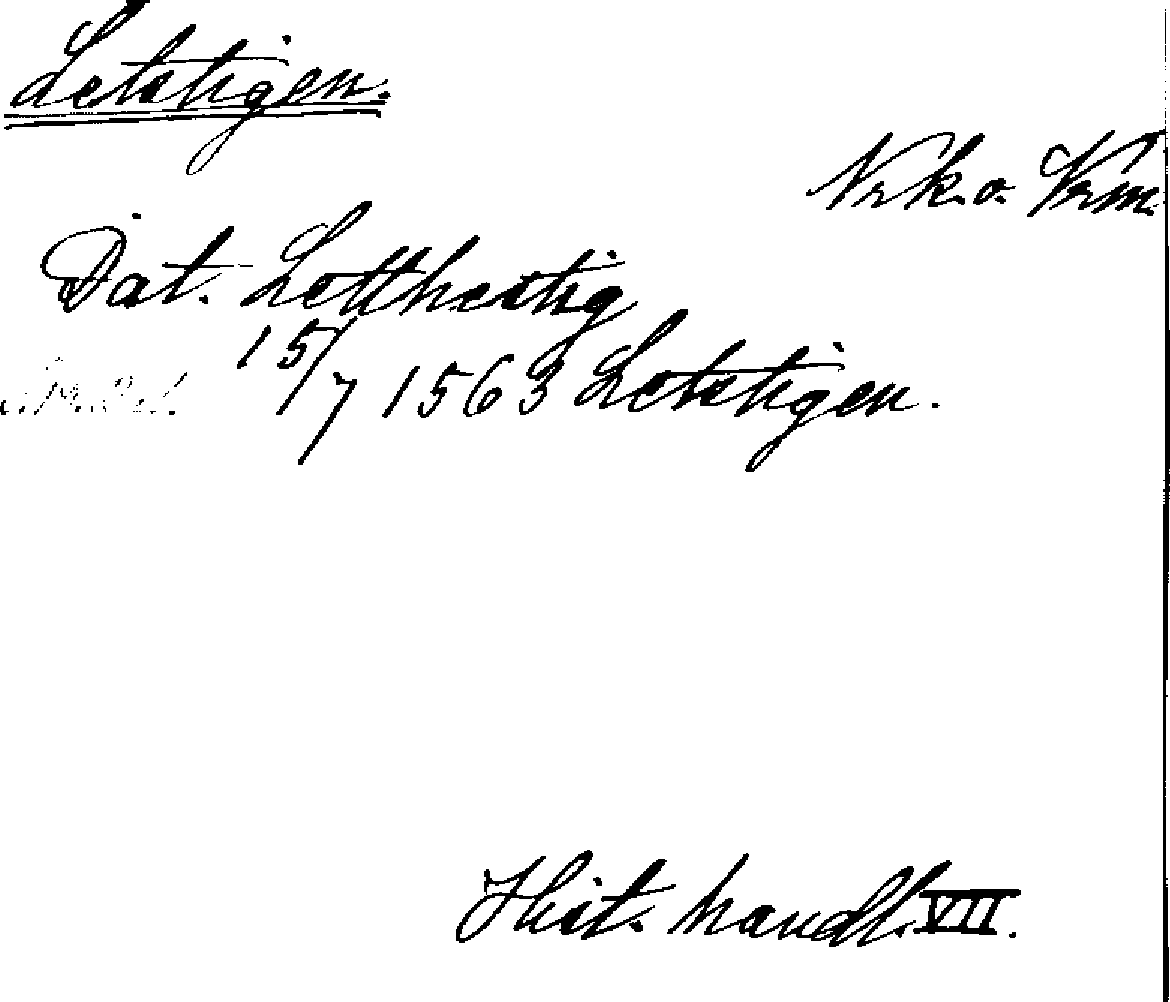 Letstigen.
Nrk. o. Vrm.
Dat. Letthestig
15/7 1563 Letstigen.
Hist. handl. VII.